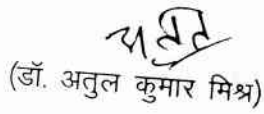 (डॉ. अतुल कुमार मिश्र)